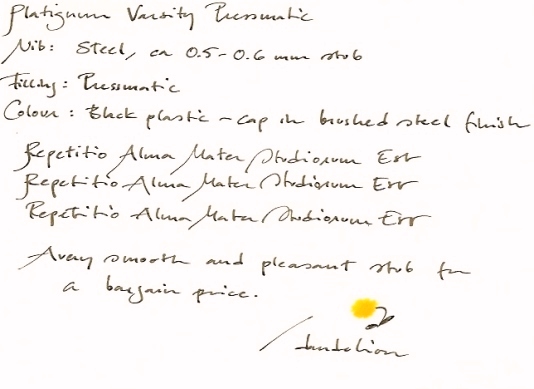 Platignum Varsity Pressmatic
Nib: Steel, ca 0.5-0.6 mm stub
Filling: Pressmatic
Colour: Black plastic - cap in brushed steel finish
Repetitio Alma Mater Studiorum Est
Repetitio Alma Mater Studiorum Est
Repetitio Alma Mater Studiorum Est
A very smooth and pleasant stub for
a bargain price.
/dandelion